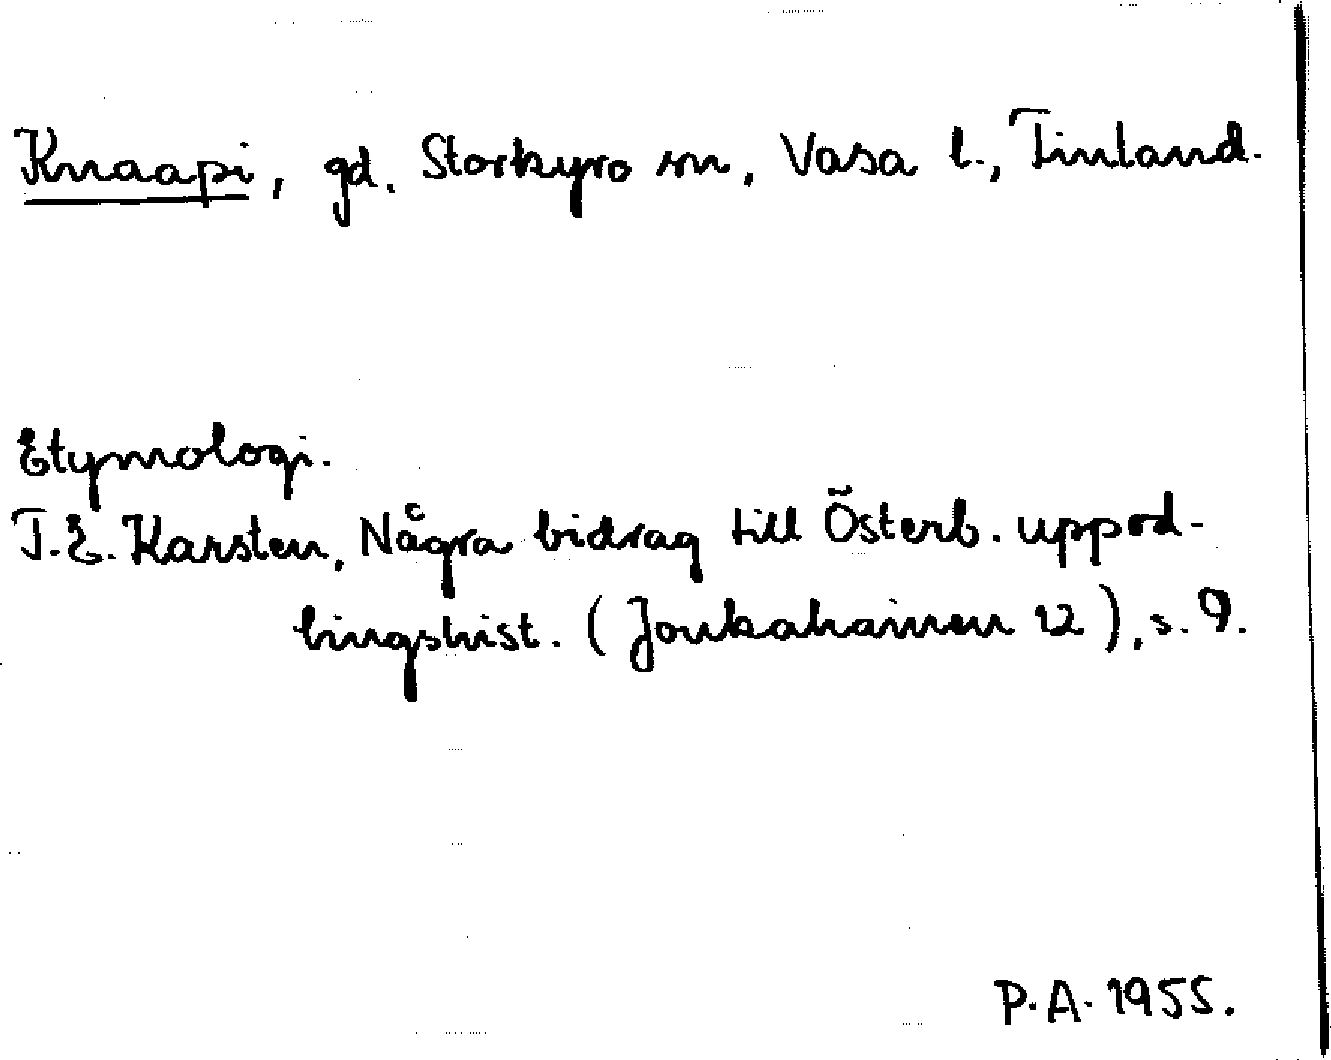 Knaapi, gd. Storkyro sn, Vasa l., Finland.
Etymologi.
T.E. Karsten, Några bidrag till Österb. uppod-
lingshist. (Joukahainen 12), s. 9.
P.A. 1955.